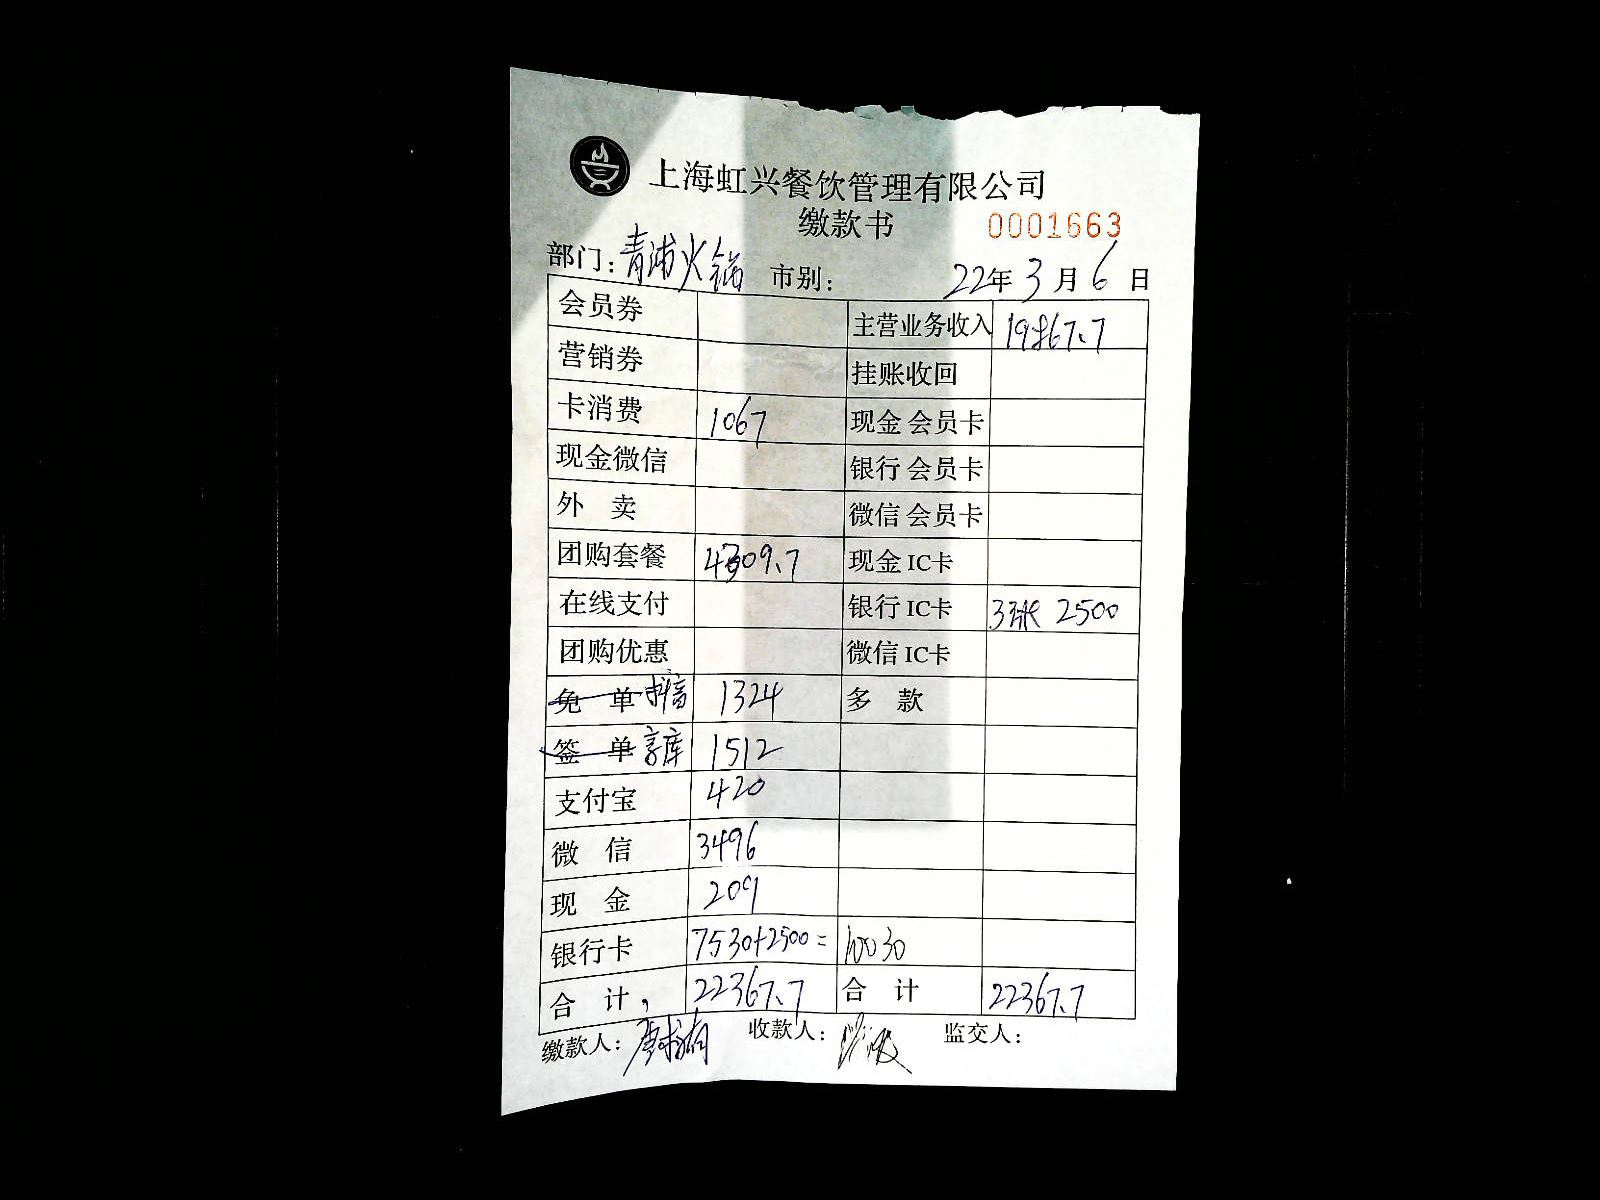 上海虹兴餐饮管理有限公司
缴款书 0001663
部门：青浦火锅 市别： 22年 3月 6日
会员券 主营业务收入 19867.7
营销券 挂账收回
卡消费 1067 现金会员卡
现金微信 银行会员卡
外 卖 微信会员卡
团购套餐 4309.7 现金IC卡
在线支付 银行IC卡 3张 2500
团购优惠 微信IC卡
免 单 抖音 1324 多 款
签 单 1512
支付宝 420
微 信 3496
现 金 209
银行卡 7530+2500= 10030
合 计 22367.7 合 计 22367.7
缴款人： 收款人： 监交人：